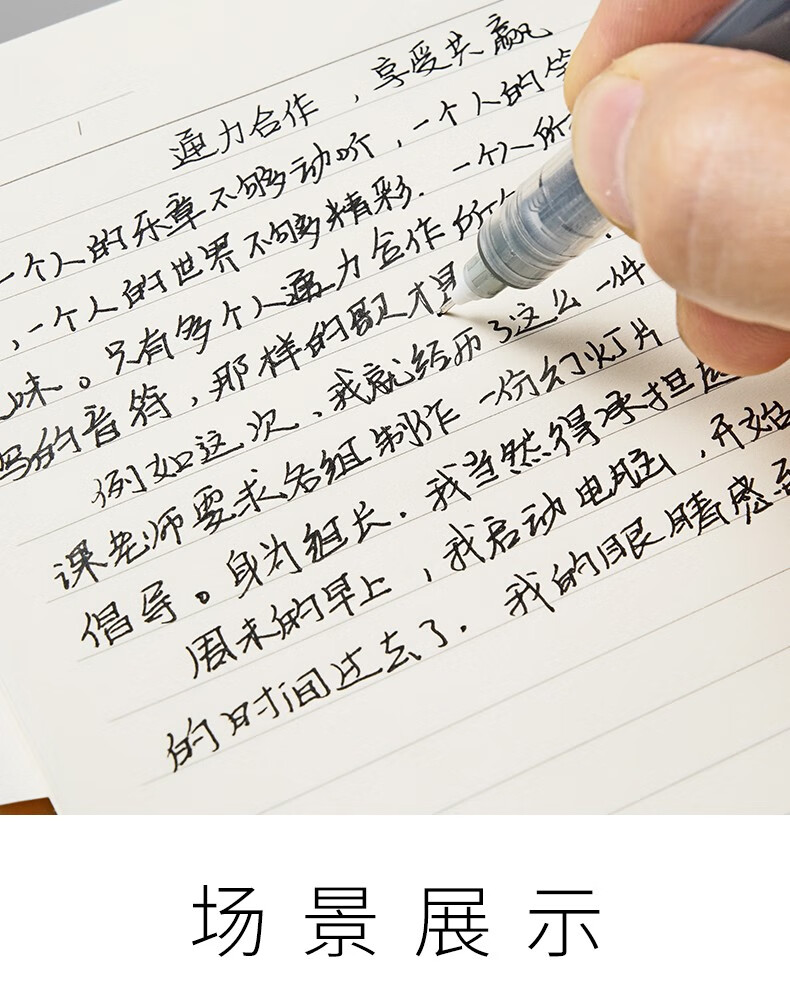 通力合作，享受共赢
一个人的乐章不够动听，一个人的
，一个人的世界不够多精彩．一个人所
味。只有多个人通力合作所
的音符，那样的歌才是
例如这次，我就经历了这么一件
课老师要求各组制作一份幻灯片
倡导。身为组长．我当然得承担起
周末的早上，我启动电脑，开始
的时间过去了．我的眼睛感到
场景展示